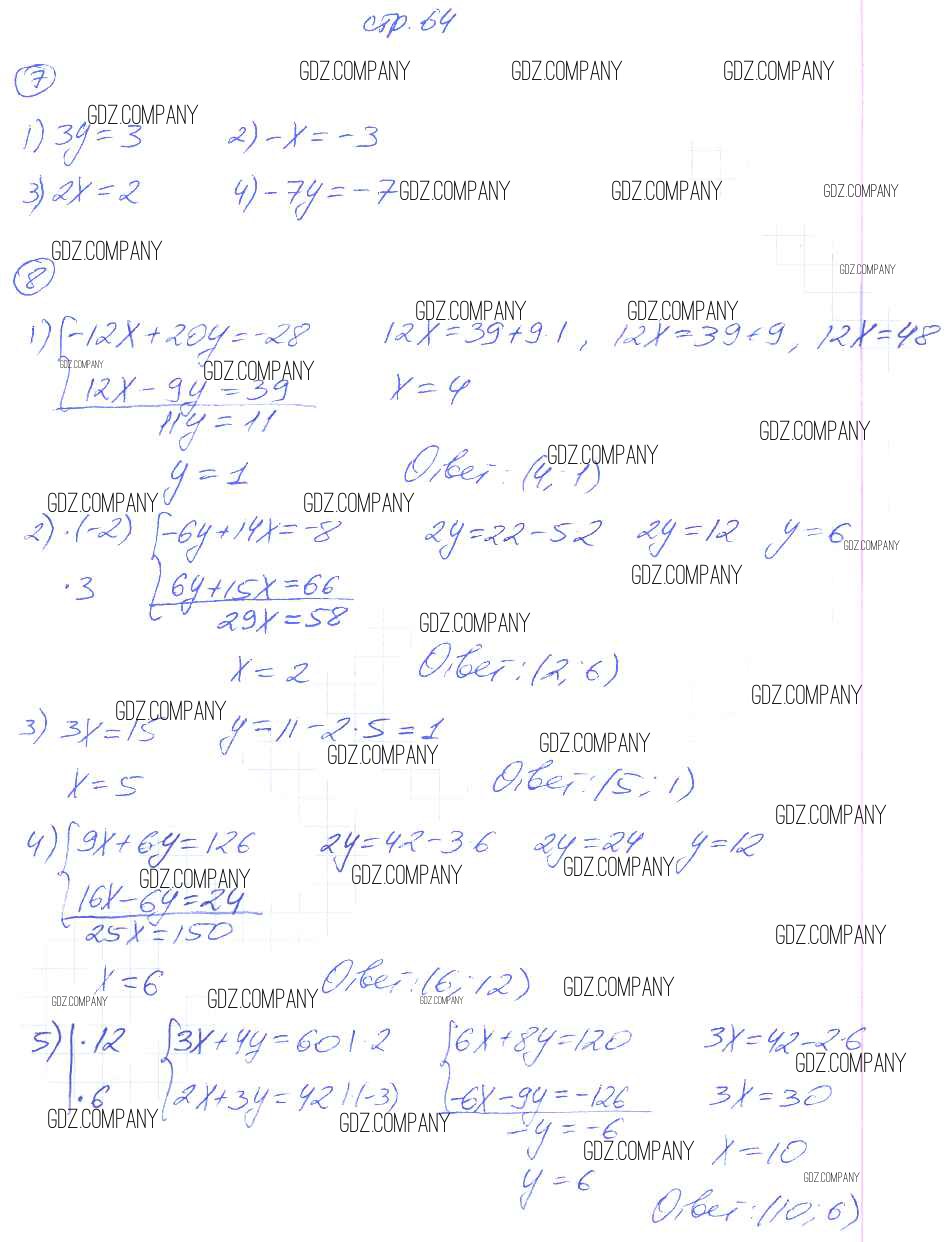 стр. 64
GDZ.COMPANY GDZ.COMPANY GDZ.COMPANY
7
GDZ.COMPANY
1) 3y = 3 2) -x = -3
3) 2x = 2 4) -7y = -7 GDZ.COMPANY GDZ.COMPANY GDZ.COMPANY
GDZ.COMPANY
8 GDZ.COMPANY
GDZ.COMPANY GDZ.COMPANY
1) { -12x + 20y = -28 12x = 39 + 9·1, 12x = 39 + 9, 12x = 48
GDZ.COMPANY GDZ.COMPANY
12x - 9y = 39 x = 4
11y = 11 GDZ.COMPANY
GDZ.COMPANY
y = 1 Ответ: (4; 1)
GDZ.COMPANY GDZ.COMPANY
2) ·(-2) { -6y + 14x = -8 2y = 22 - 5·2 2y = 12 y = 6 GDZ.COMPANY
GDZ.COMPANY
·3 6y + 15x = 66
29x = 58 GDZ.COMPANY
x = 2 Ответ: (2; 6)
GDZ.COMPANY GDZ.COMPANY
3) 3x = 15 y = 11 - 2·5 = 1
GDZ.COMPANY GDZ.COMPANY
x = 5 Ответ: (5; 1)
GDZ.COMPANY
4) { 9x + 6y = 126 2y = 42 - 3·6 2y = 24 y = 12
GDZ.COMPANY GDZ.COMPANY GDZ.COMPANY
16x - 6y = 24
25x = 150 GDZ.COMPANY
x = 6 Ответ: (6; 12) GDZ.COMPANY
GDZ.COMPANY GDZ.COMPANY GDZ.COMPANY
5) |·12 { 3x + 4y = 60 |·2 { 6x + 8y = 120 3x = 42 - 2·6
GDZ.COMPANY
|·6 2x + 3y = 42 |·(-3) -6x - 9y = -126 3x = 30
GDZ.COMPANY GDZ.COMPANY
-y = -6
GDZ.COMPANY x = 10
y = 6 GDZ.COMPANY
Ответ: (10; 6)